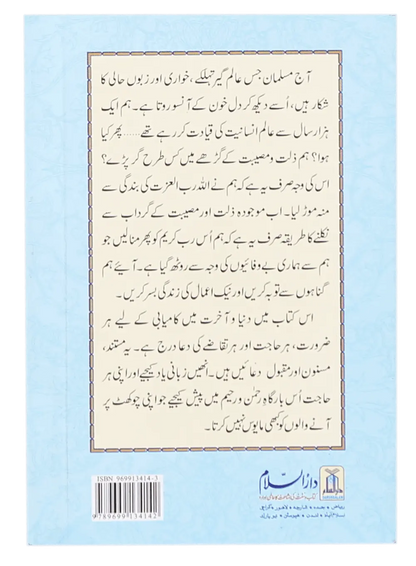 آج مسلمان جس عالم گیر تہلکے، خواری اور زبوں حالی کا
شکار ہیں، اُسے دیکھ کر دل خون کے آنسو روتا ہے۔ ہم ایک
ہزار سال سے عالم انسانیت کی قیادت کر رہے تھے...... پھر کیا
ہوا؟ ہم ذلت و مصیبت کے گڑھے میں کس طرح گر پڑے؟
اس کی وجہ صرف یہ ہے کہ ہم نے اللہ رب العزت کی بندگی سے
منہ موڑ لیا۔ اب موجودہ ذلت اور مصیبت کے گرداب سے
نکلنے کا طریقہ صرف یہ ہے کہ ہم اُس رب کریم کو پھر منا لیں جو
ہم سے ہماری بے وفائیوں کی وجہ سے روٹھ گیا ہے۔ آیئے ہم
گناہوں سے توبہ کریں اور نیک اعمال کی زندگی بسر کریں۔
اس کتاب میں دنیا و آخرت میں کامیابی کے لیے ہر
ضرورت، ہر حاجت اور ہر تقاضے کی دعا درج ہے۔ یہ مستند،
مسنون اور مقبول دعائیں ہیں۔ انھیں زبانی یاد کیجیے اور اپنی ہر
حاجت اُس بارگاہِ رحمٰن و رحیم میں پیش کیجیے جو اپنی چوکھٹ پر
آنے والوں کو کبھی مایوس نہیں کرتا۔
ISBN 969913414-3
9789699134142
دارُالسّلام
کتاب و سنت کی اشاعت کا عالمی ادارہ
ریاض • جدہ • شارجہ • لاہور • کراچی
اسلام آباد • لندن • ہیوسٹن • نیویارک